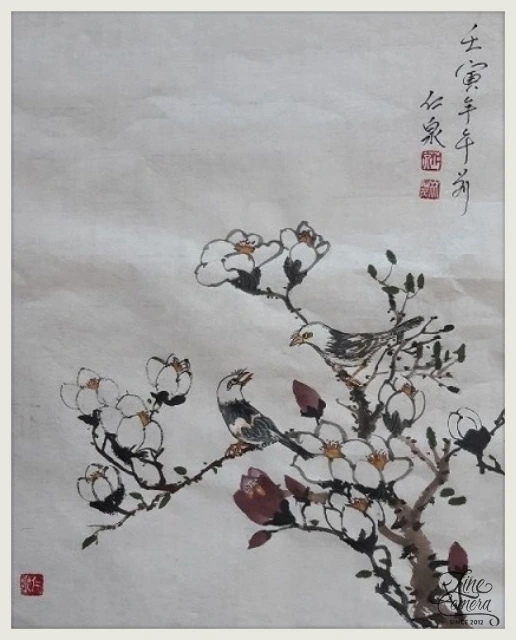 壬寅年午前
仁泉
Line
Camera
SINCE 2012